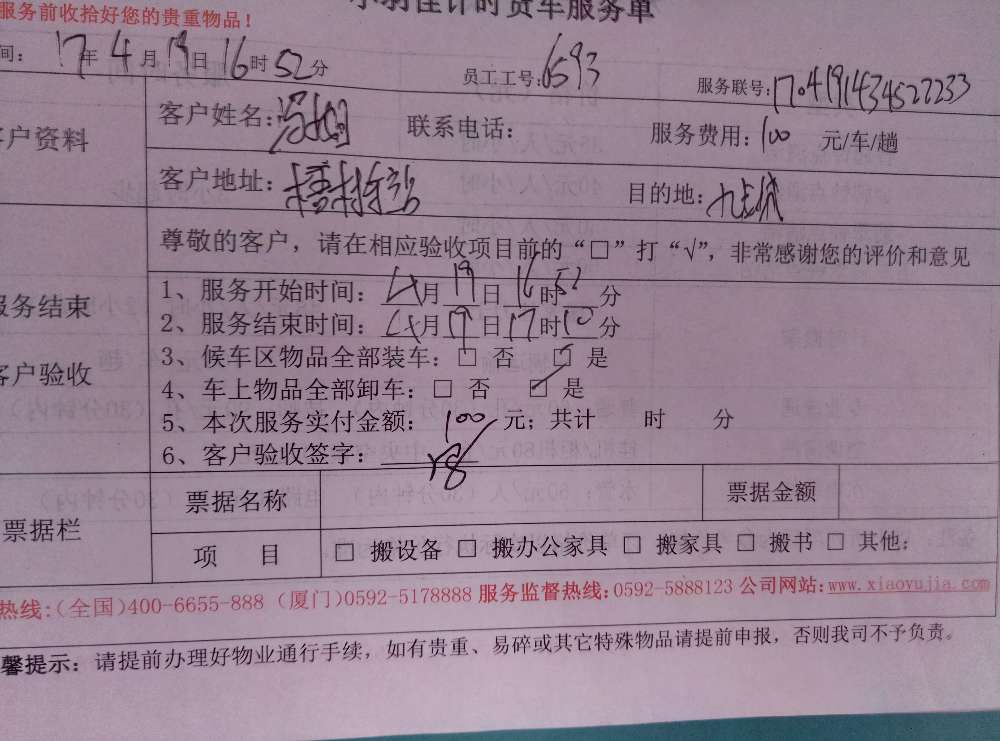 计时货车服务单
服务前收拾好您的贵重物品！
间：17年4月19日16时52分 员工工号：6593 服务联号：
客户资料
客户姓名： 联系电话： 服务费用：100 元/车/趟
客户地址： 目的地：
尊敬的客户，请在相应验收项目前的“□”打“√”，非常感谢您的评价和意见
服务结束
客户验收
1、服务开始时间：4月19日16时52分
2、服务结束时间：4月19日17时10分
3、候车区物品全部装车：□ 否 ☑ 是
4、车上物品全部卸车：□ 否 ☑ 是
5、本次服务实付金额：100元；共计 时 分
6、客户验收签字：
票据栏
票据名称 票据金额
项 目 □ 搬设备 □ 搬办公家具 □ 搬家具 □ 搬书 □ 其他：
热线：（全国）400-6655-888（厦门）0592-5178888 服务监督热线：0592-5888123 公司网站：www.xiaoyujia.com
馨提示：请提前办理好物业通行手续，如有贵重、易碎或其它特殊物品请提前申报，否则我司不予负责。